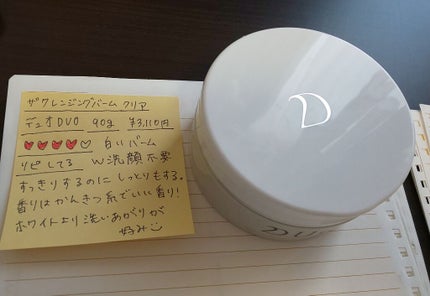 ザ クレンジングバーム クリア
デュオ DUO 90g ¥3,110円
♥♥♥♥♡ 白いバーム
リピしてる W洗顔不要
すっきりするのに しっとりもする。
香りはかんきつ系でいい香り!
ホワイトより洗いあがりが
好み
D
DUO